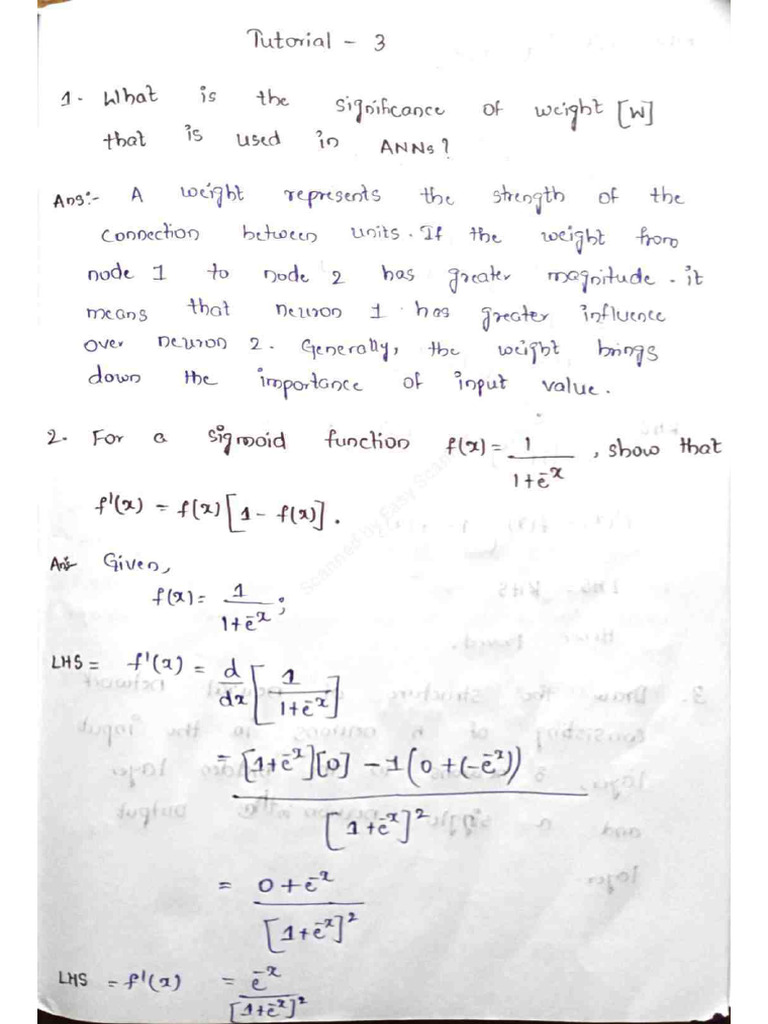 Tutorial - 3
1. What is the significance of weight [W]
that is used in ANNs?
Ans:- A weight represents the strength of the
connection between units. If the weight from
node 1 to node 2 has greater magnitude. it
means that neuron 1 has greater influence
over neuron 2. Generally, the weight brings
down the importance of input value.
2. For a sigmoid function f(x) = 1/(1+e^-x), show that
f'(x) = f(x)[1 - f(x)].
Ans- Given,
f(x) = 1/(1+e^-x);
LHS = f'(x) = d/dx [1/(1+e^-x)]
= [1+e^-x][0] - 1(0+(-e^-x)) / [1+e^-x]^2
= 0+e^-x / [1+e^-x]^2
LHS = f'(x) = e^-x / [1+e^-x]^2
Scanned by Easy Scan